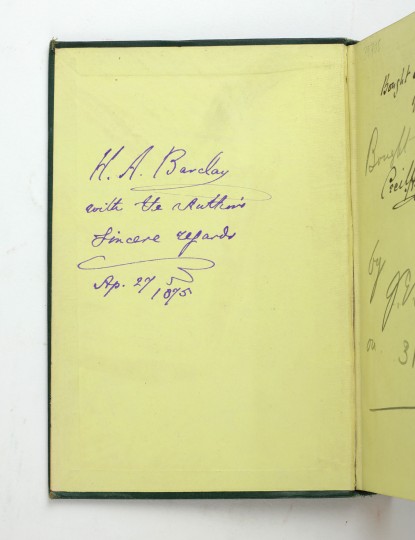 H. A. Barclay
with the Author's
Sincere regards
Ap. 27 1875
Bought
Bought
by
on 31